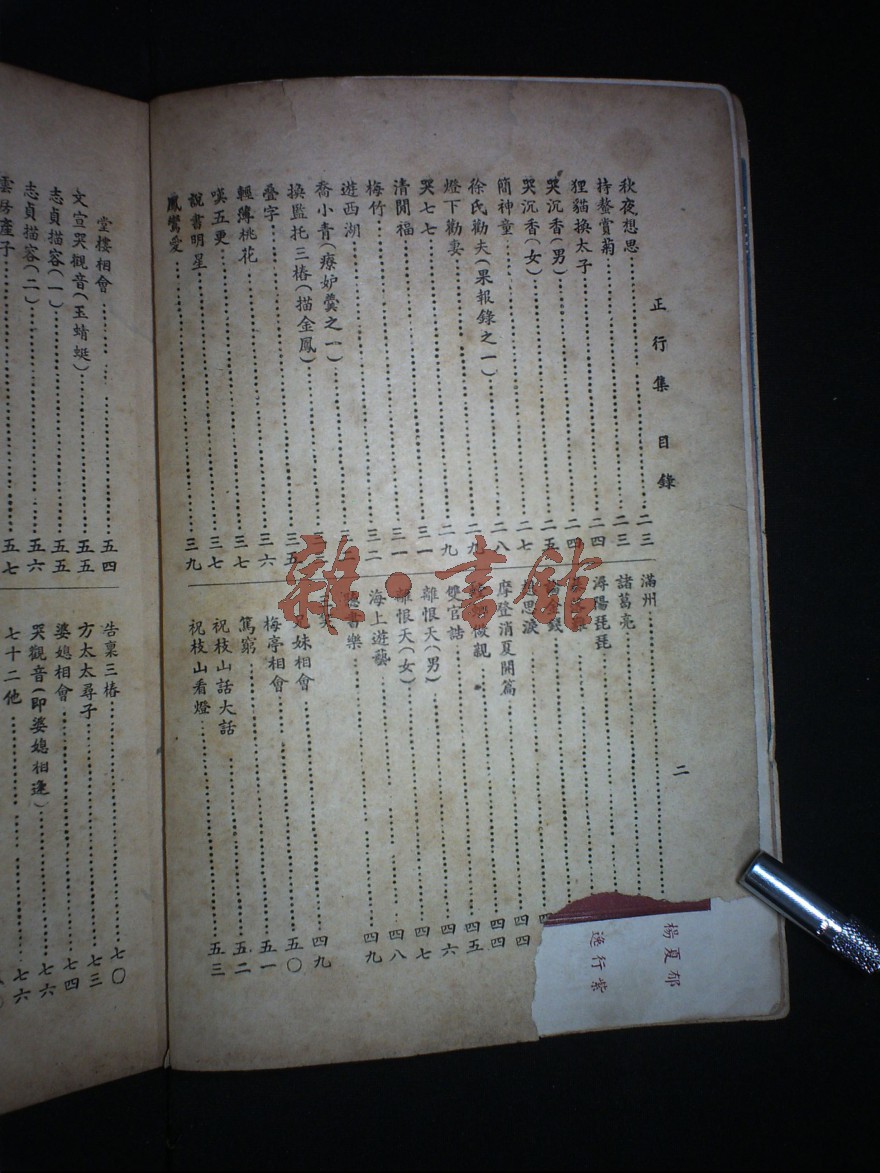 正行集 目錄
二
秋夜想思……二三
持螯賞菊……二三
狸貓換太子……二四
哭沉香(男)……二四
哭沉香(女)……二五
簡神童……二七
徐氏勸夫(果報錄之一)……二八
燈下勸妻……二九
哭七七……二九
清閒福……三一
梅竹……三一
遊西湖……三二
喬小青(療妒羹之一)
換監托三椿(描金鳳)
疊字……三五
輕薄桃花……三六
嘆五更……三七
說書明星……三七
鳳鸞愛……三九
滿州
諸葛亮
潯陽琵琶
想思淚
摩登消夏開篇……四四
雙官誥……四五
離恨天(男)……四六
離恨天(女)……四七
海上遊藝……四八
兄妹相會……四九
梅亭相會……五〇
篤窮……五一
祝枝山話大話……五二
祝枝山看燈……五三
楊夏郁
逸行紫
堂樓相會……五四
文宣哭觀音(玉蜻蜓)……五五
志貞描容(一)……五五
志貞描容(二)……五六
雲房產子……五七
告稟三椿……七〇
方太太尋子……七三
婆媳相會……七四
哭觀音(即婆媳相逢)……七六
七十二他……七六
雜·書館